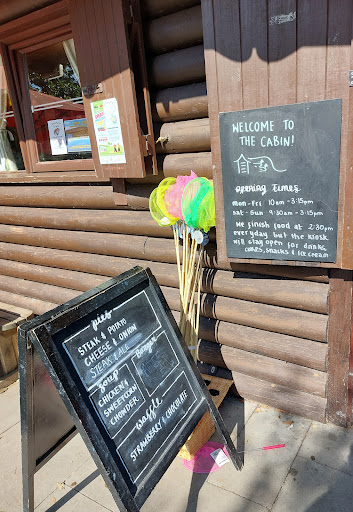 WELCOME TO
THE CABIN!
Opening Times
Mon-Fri 10am - 3:15pm
Sat-Sun 9:30am - 3:15pm
We finish food at 2:30pm
everyday but the kiosk
will stay open for drinks,
cakes, snacks & ice cream
Pies
STEAK & POTATO
CHEESE & ONION
STEAK & ALE
Soup
CHICKEN &
SWEETCORN
CHOWDER
Burger
Waffle
STRAWBERRY & CHOCOLATE